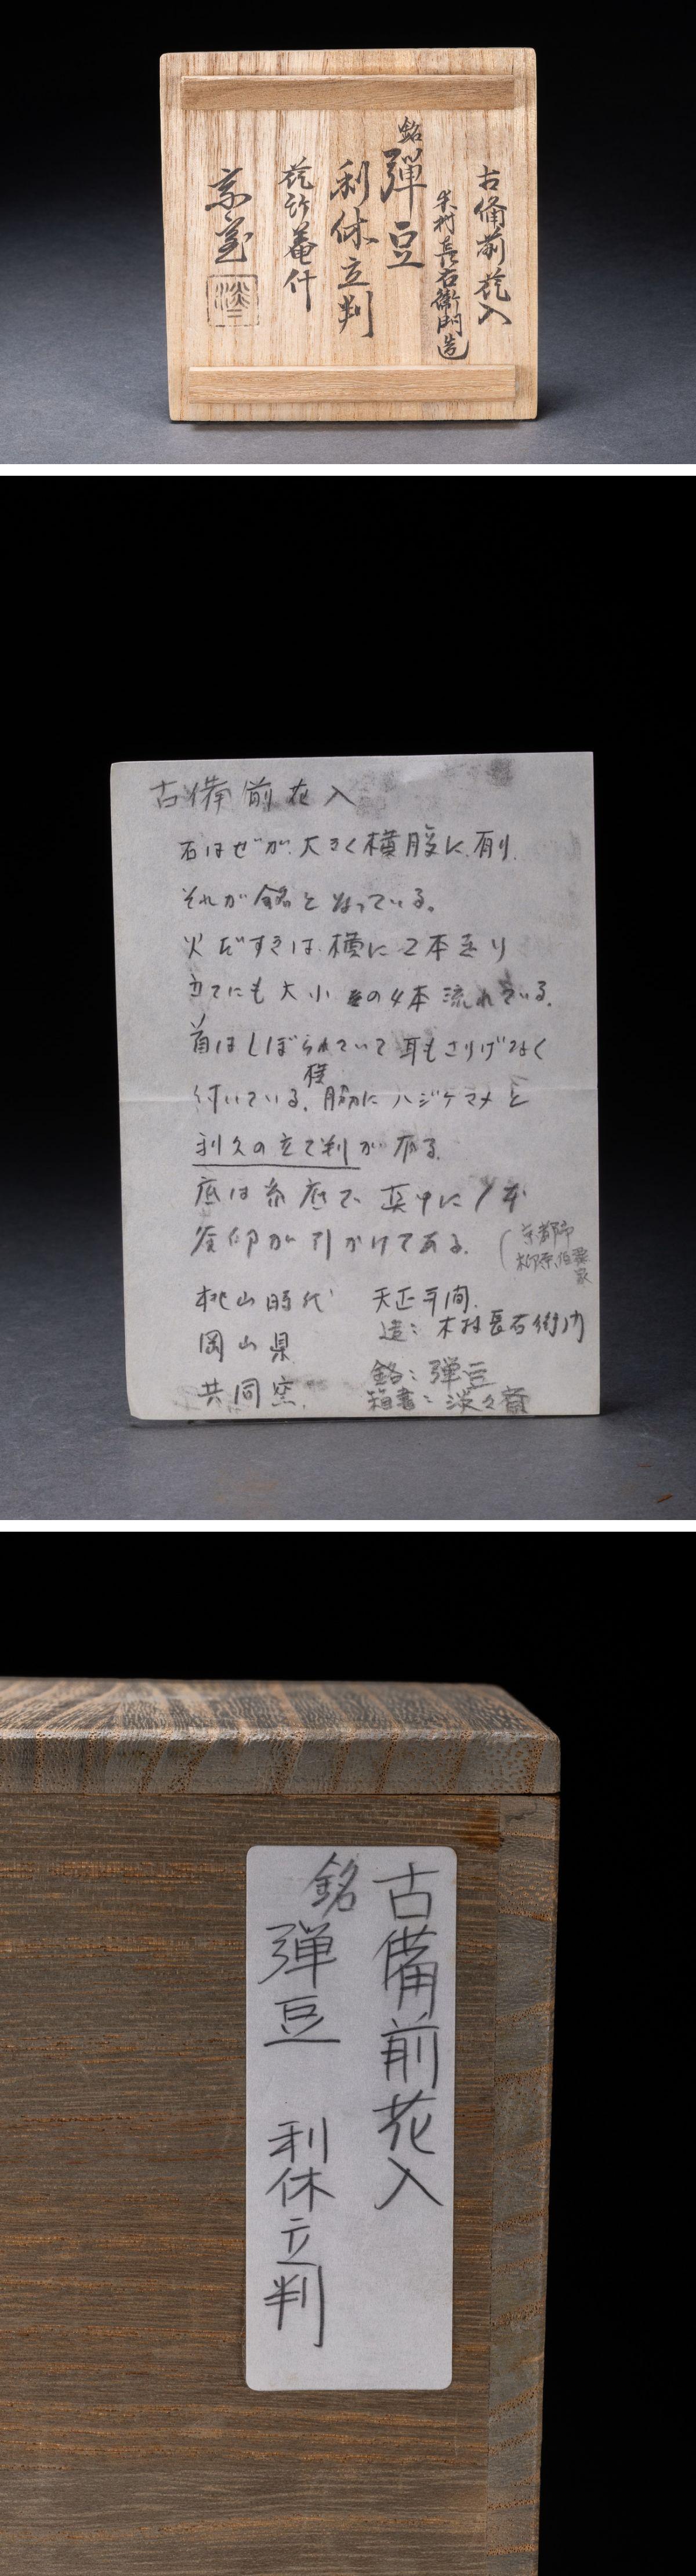 古備前花入
木村長右衛門造
銘
彈豆
利休立判
花
宗室
淡々
古備前花入
石はぜが大きく横腹に有り
それが銘となっている。
火だすきは横に2本走り
立てにも大小の4本流れている。
首はしぼられていて耳もさりげなく
付いている。横脇にハジケマメと
利久の立て判が有る。
底は糸底で真中に1本
釜印が引かけてある。
京都市
柳原伯爵家
桃山時代 天正年間
岡山県 造:木村長右衛門
共同窯
銘:弾豆
箱書:淡々斎
古備前花入
銘 弾豆 利休立判